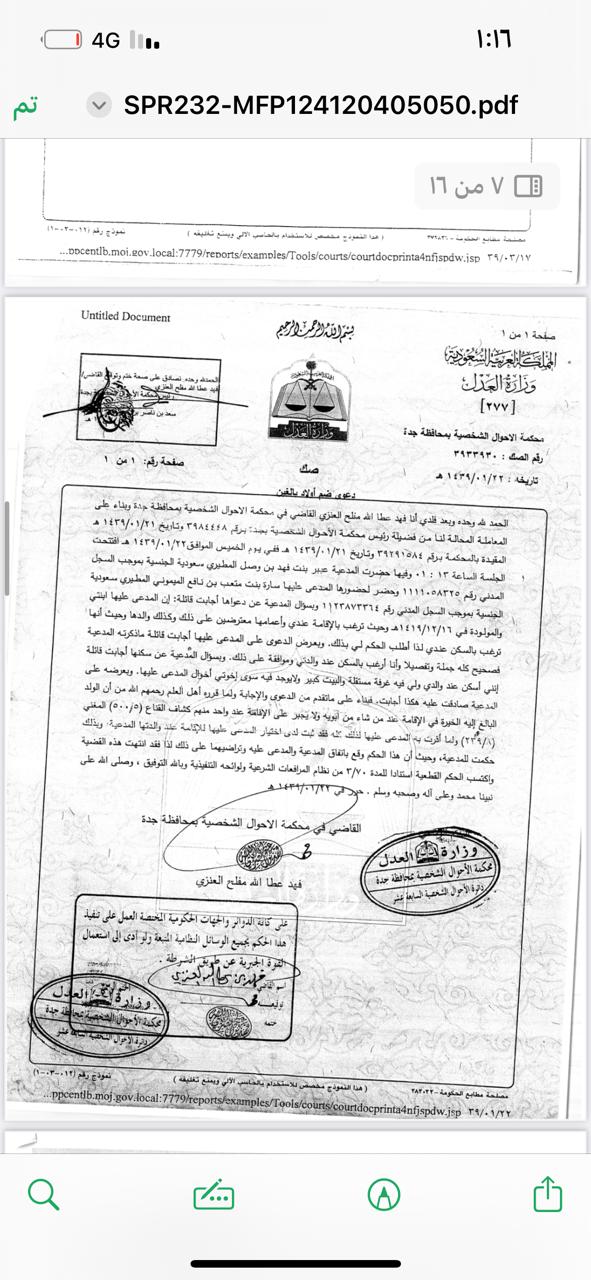 ١:١٦
4G
SPR232-MFP124120405050.pdf
تم
٧ من ١٦
مصلحة مطابع الحكومة - ٣٧٩٨٣٦
( هذا النموذج مخصص للاستخدام بالحاسب الآلي ويمنع تغليفه )
نموذج رقم (١٢-٠٣-٠١)
...ppcentlb.moj.gov.local:7779/reports/examples/Tools/courts/courtdocprinta4nfjspdw.jsp ٣٩/٠٣/١٧
صفحة ١ من ١
Untitled Document
بسم الله الرحمن الرحيم
المملكة العربية السعودية
وزارة العدل
[٢٧٧]
محكمة الاحوال الشخصية بمحافظة جدة
رقم الصك : ٣٩٣٣٩٣٠
تاريخه : ١٤٣٩/٠١/٢٢ هـ
وزارة العدل
الحمدلله وحده. نصادق على صحة ختم وتوقيع القاضي/
فهد عطا الله مفلح العنزي
سعد بن ناصر
صفحة رقم: ١ من ١
صك
دعوى ضم أولاد بالغين
الحمد لله وحده وبعد فلدي أنا فهد عطا الله مفلح العنزي القاضي في محكمة الاحوال الشخصية بمحافظة جدة وبناء على
المعاملة المحالة لنا من فضيلة رئيس محكمة الأحوال الشخصية بجدة برقم ٣٩٨٤٤٦٨ وتاريخ ١٤٣٩/٠١/٢١ هـ
المقيدة بالمحكمة برقم ٣٩٢٩١٥٨٤ وتاريخ ١٤٣٩/٠١/٢١ هـ ففي يوم الخميس الموافق١٤٣٩/٠١/٢٢ هـ افتتحت
الجلسة الساعة ١٣ : ٠١ وفيها حضرت المدعية عبير بنت فهد بن وصل المطيري سعودية الجنسية بموجب السجل
المدني رقم ١١١١٠٥٨٣٢٥ وحضر لحضورها المدعى عليها سارة بنت متعب بن نافع الميموني المطيري سعودية
الجنسية بموجب السجل المدني رقم ١١٢٣٨٧٣٣٦٤ وبسؤال المدعية عن دعواها أجابت قائلة: إن المدعى عليها ابنتي
والمولودة في ١٤١٩/١٢/١٦هـ وحيث ترغب بالإقامة عندي وأعمامها معترضين على ذلك وكذلك والدها وحيث أنها
ترغب بالسكن عندي لذا أطلب الحكم لي بذلك. وبعرض الدعوى على المدعى عليها أجابت قائلة ماذكرته المدعية
فصحيح كله جملة وتفصيلا وأنا أرغب بالسكن عند والدتي وموافقة على ذلك. وبسؤال المدعية عن سكنها أجابت قائلة
إنني أسكن عند والدي ولي فيه غرفة مستقلة والبيت كبير ولايوجد فيه سوى إخوتي أخوال المدعى عليها. وبعرضه على
المدعية صادقت عليه هكذا أجابت. فبناء على ماتقدم من الدعوى والإجابة ولما قرره أهل العلم رحمهم الله من أن الولد
البالغ إليه الخيرة في الإقامة عند من شاء من أبويه ولا يجبر على الإقامة عند واحد منهم كشاف القناع (٥٠٠/٥) المغني
(٢٣٩/٨) ولما أقرت به المدعى عليها لذلك كله فقد ثبت لدي اختيار المدعى عليها للإقامة عند والدتها المدعية. وبذلك
حكمت للمدعية، وحيث أن هذا الحكم وقع باتفاق المدعية والمدعى عليه وتراضيهما على ذلك لذا فقد انتهت هذه القضية
واكتسب الحكم القطعية استنادا للمدة ٣/٧٠ من نظام المرافعات الشرعية ولوائحه التنفيذية وبالله التوفيق ، وصلى الله على
نبينا محمد وعلى آله وصحبه وسلم . حرر في ١٤٣٩/٠١/٢٢ هـ
القاضي في محكمة الاحوال الشخصية بمحافظة جدة
فهد عطا الله مفلح العنزي
وزارة العدل
محكمة الأحوال الشخصية بمحافظة جدة
دائرة الأحوال الشخصية السابعة عشر
على كافة الدوائر والجهات الحكومية المختصة العمل على تنفيذ
هذا الحكم بجميع الوسائل النظامية المتبعة ولو أدى إلى استعمال
القوة الجبرية عن طريق الشرطة .
اسم القاضي
توقيعه
ختمه
وزارة العدل
محكمة الأحوال الشخصية بمحافظة جدة
دائرة الأحوال الشخصية السابعة عشر
مصلحة مطابع الحكومة - ٢٨٣٠٢٢
( هذا النموذج مخصص للاستخدام بالحاسب الآلي ويمنع تغليفه )
نموذج رقم (١٢-٠٣-٠١)
...ppcentlb.moj.gov.local:7779/reports/examples/Tools/courts/courtdocprinta4nfjspdw.jsp ٣٩/٠١/٢٢